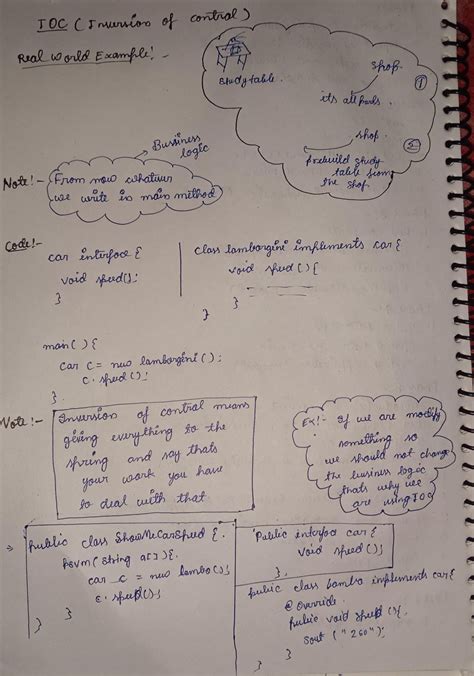 IOC ( Inversion of control )
Real World Example! -
Study table.
Shop.
①
its all parts.
shop.
②
prebuild study
table from
the shop.
Bussiness
logic
Note! -
From now whatever
we write in main method
Code! -
car interface {
void speed();
}
Class lamborgini implements car {
void speed () {
}
}
main( ) {
car c = new lamborgini ( );
c. speed ();
}
Note! -
Inversion of control means
giving everything to the
spring and say thats
your work you have
to deal with that
Ex! - If we are modify
something so
we should not change
the business logic
thats why we
are using IOC
⇒ public class ShowMeCarSpeed {
Psvm( String a[ ] ) {
car c = new lambo();
c. speed();
}
}
Public interface car {
void speed ();
}
public class lambo implements car {
@ Override
public void speed () {
Sout ( "260");
}
}